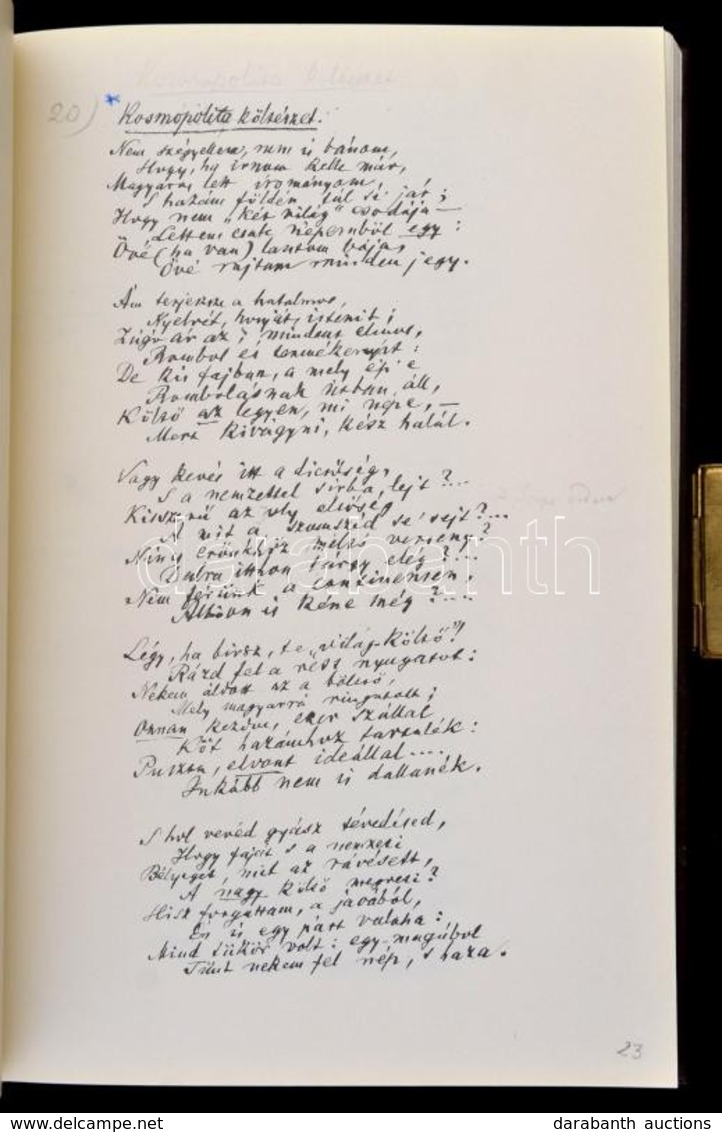 Kosmopolita költészet
20) * Kosmopolita költészet.
Nem szégyellem, nem is bánom,
Hogy, ha írnom kelle már,
Magyaros lett írományom,
S hazám földén túl se jár;
Hogy nem „két világ” csodája –
Lettem csak népemből egy:
Övé (ha van) lantom bája,
Övé rajtam minden jegy.
Ám terjessze a hatalmas,
Nyelvét, honját, istenit;
Zúgó ár az, mindent elmos,
Rombol és termékenyít:
De kis fajban, a mely ép e
Rombolásnak útban áll,
Költő az legyen, mi népe, –
Mert kivágyni, kész halál.
Vagy kevés itt a dicsőség,
S a nemzettel sírba lejt?...
Kisszerű az oly elsőség,
A mit a szomszéd se' sejt?...
Nincs erőnkhöz méltó verseny?
Dalra itthon tárgy elég?...
Nem férünk a continensen,
Albion is kéne még?....
Légy, ha bírsz, te „világ-költő”!
Rázd fel a rest nyugatot:
Nekem áldott az a bölcső,
Mely magyarrá ringatott;
Onnan kezdve, ezer szállal
Köt hazámhoz tartalék:
Puszta, elvont ideállal....
Inkább nem is dallanék.
S hol vevéd gyász tévedésed,
Hogy faját s a nemzeti
Bélyeget, mit az rávésett,
A nagy költő megveti?
Hisz forgattam, a javából,
Én is egy párt valaha:
Mind tükör volt: egymagából
Tűnt nekem fel nép, s haza.
23
darabanth
www.darabanth.com
darabanth auctions